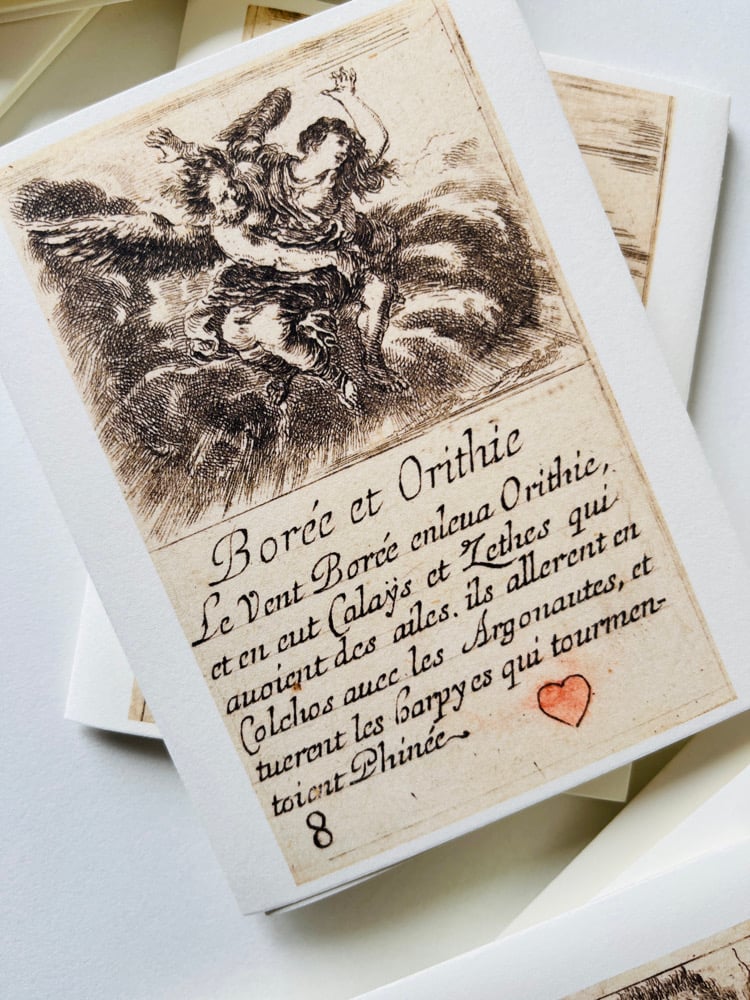 Borée et Orithie
Le Vent Borée enleua Orithie,
et en eut Calaÿs et Zethes qui
auoient des ailes. ils allerent en
Colchos auec les Argonautes, et
tuerent les harpyes qui tourmen-
toient Phinée
8